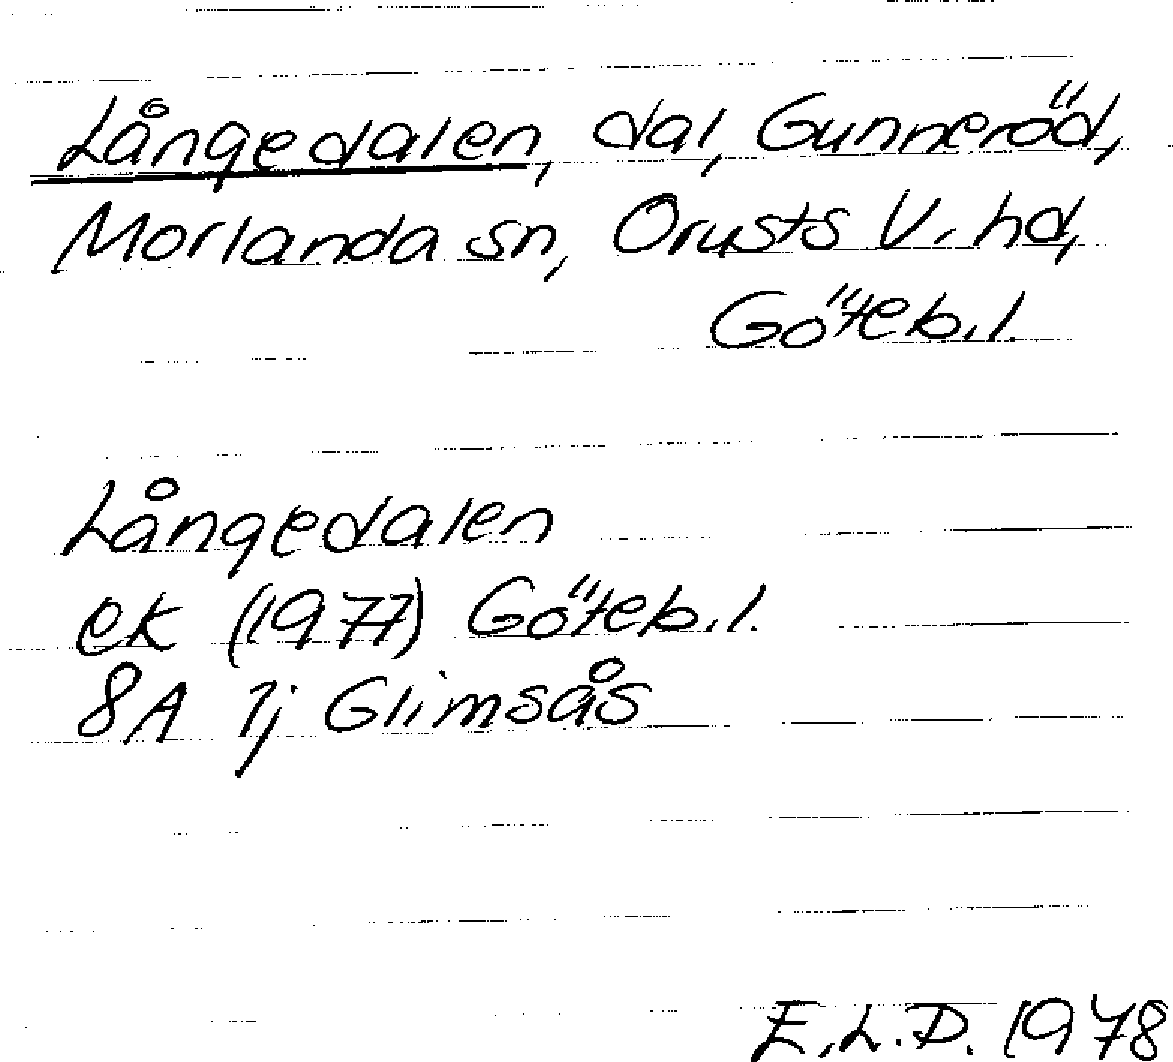 Långedalen, dal, Gunneröd,
Morlanda sn, Orusts V. hd,
Göteb.l.
Långedalen
ek (1977) Göteb.l.
8A 1j Glimsås
E.L.D. 1978